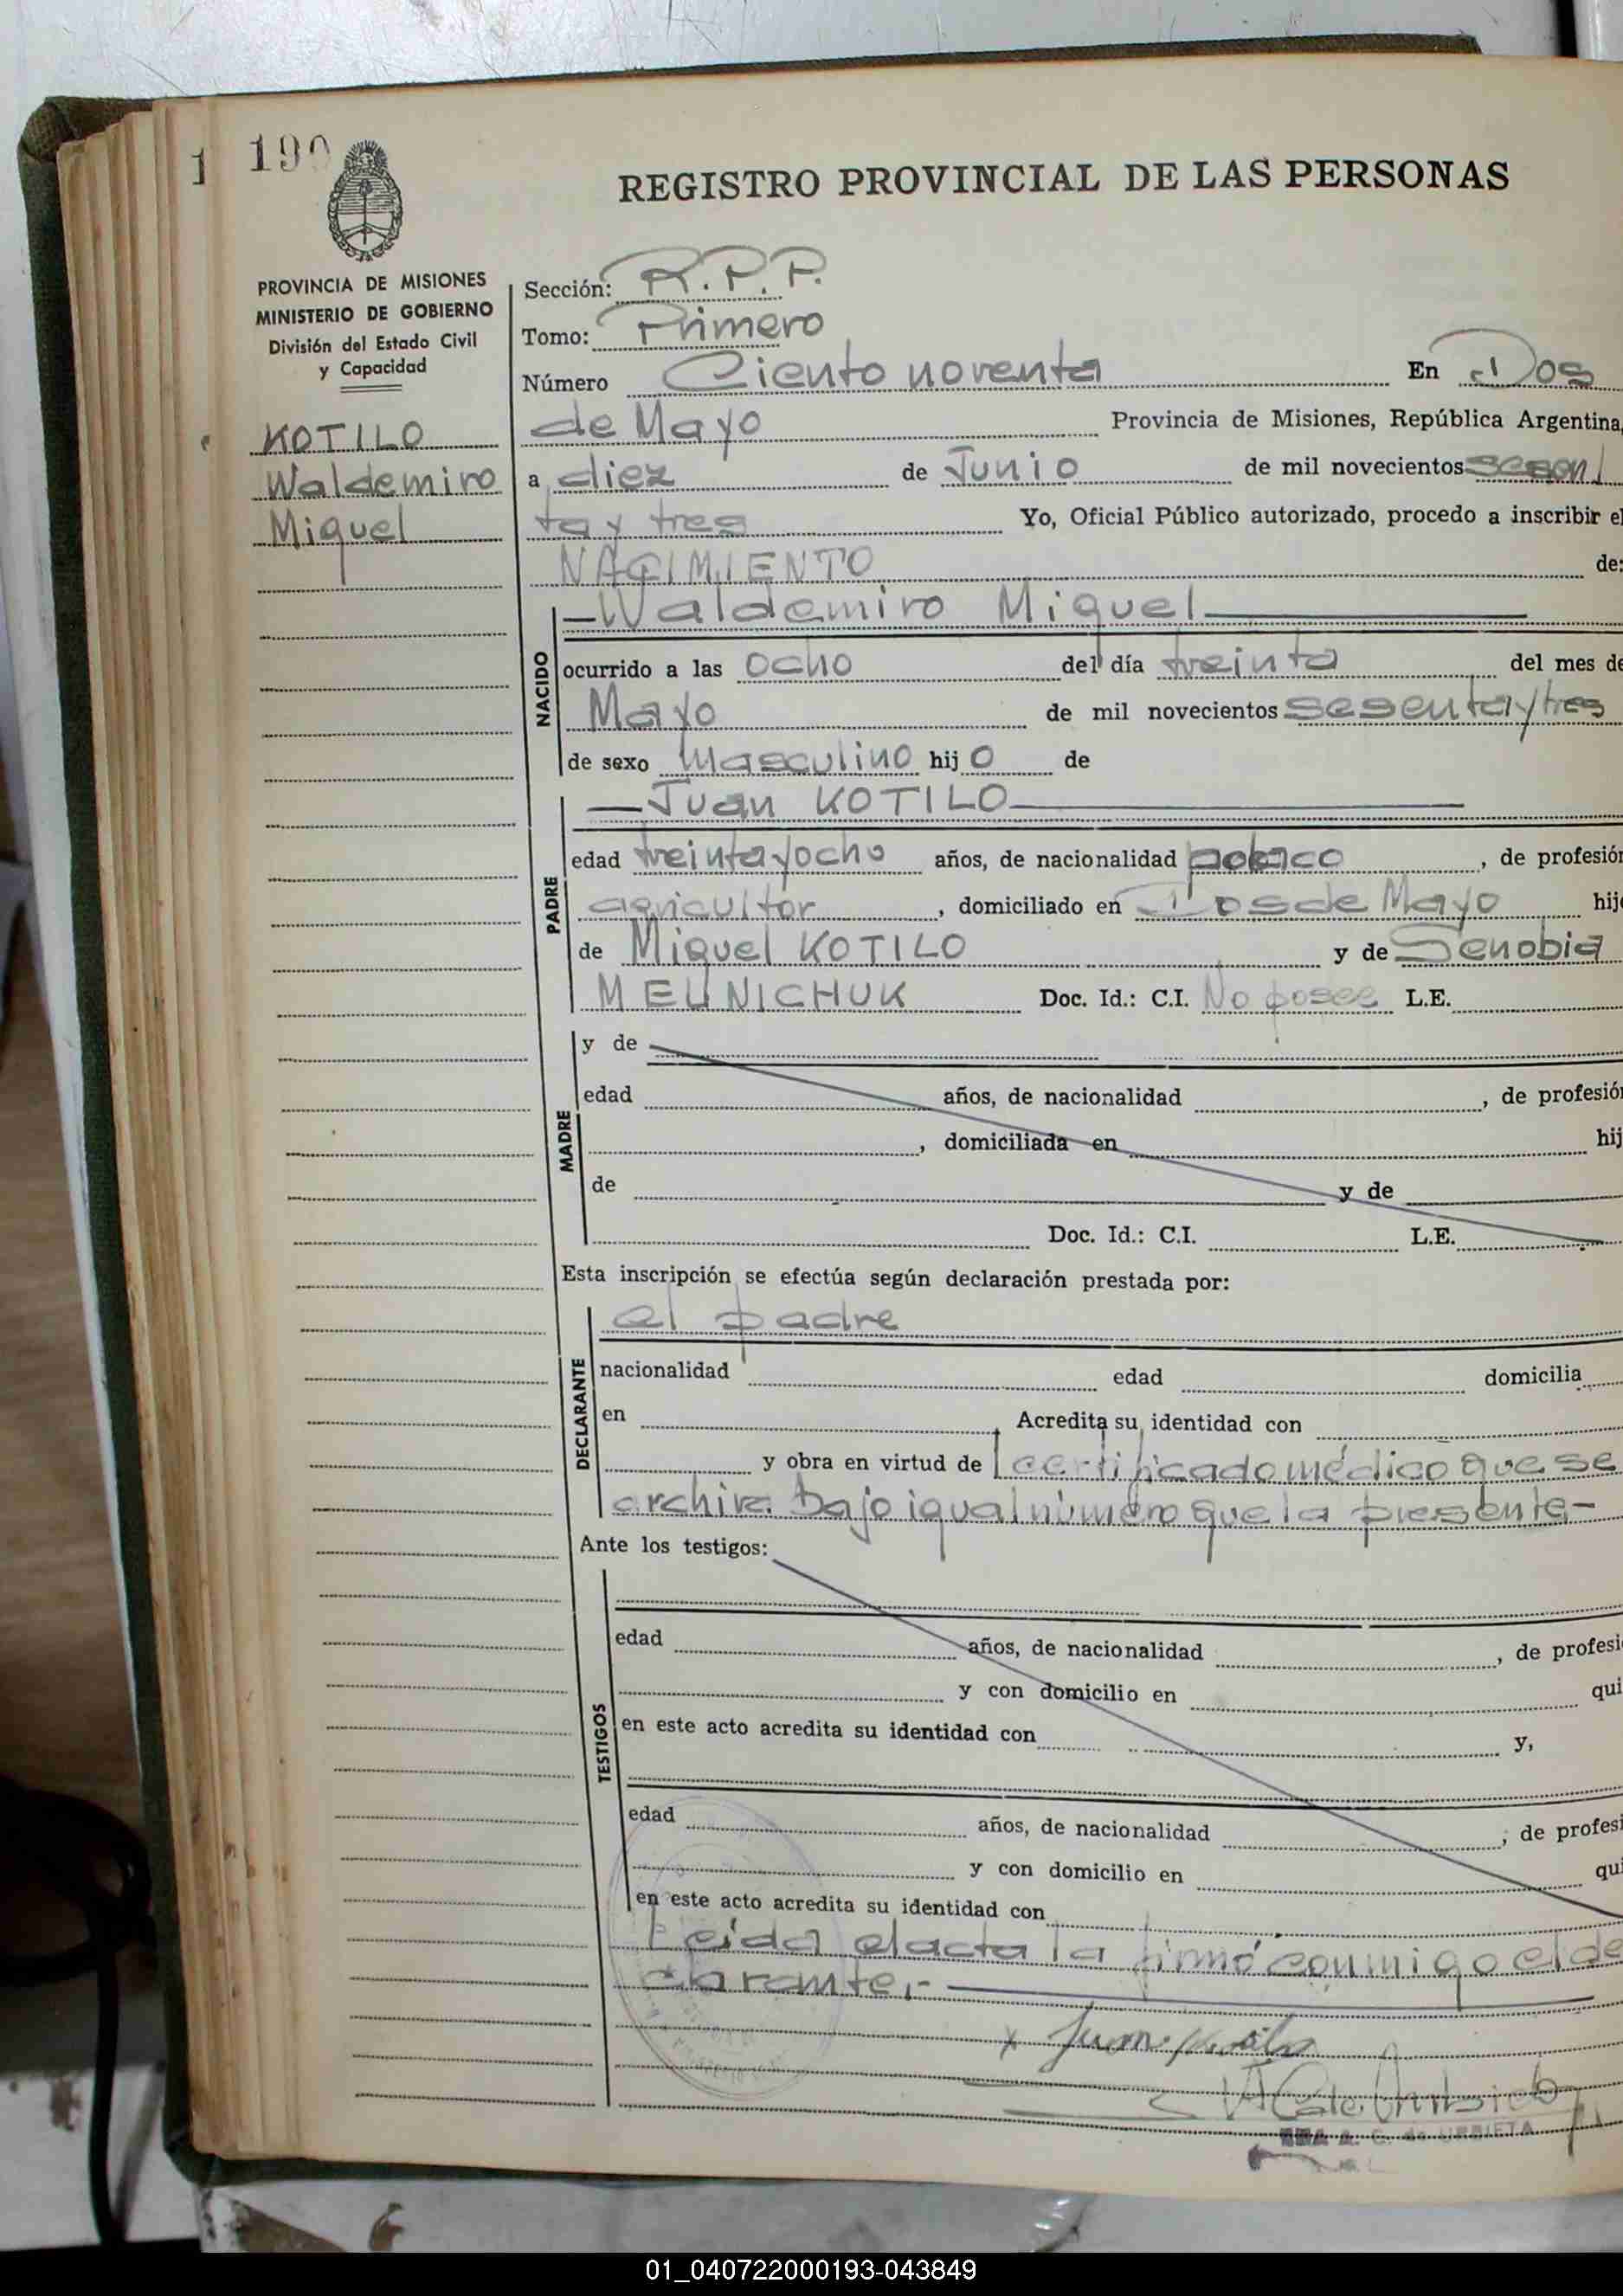 1 190
REGISTRO PROVINCIAL DE LAS PERSONAS
PROVINCIA DE MISIONES
MINISTERIO DE GOBIERNO
División del Estado Civil
y Capacidad
KOTILO
Waldemiro
Miguel
Sección: R.P.P.
Tomo: Primero
Número Ciento noventa En Dos
de Mayo Provincia de Misiones, República Argentina,
a diez de Junio de mil novecientos sesen
ta y tres Yo, Oficial Público autorizado, procedo a inscribir el
NACIMIENTO de:
NACIDO
—Waldemiro Miguel—
ocurrido a las ocho del día treinta del mes de
Mayo de mil novecientos sesentaytres
de sexo masculino hijo de
PADRE
—Juan KOTILO—
edad treintayocho años, de nacionalidad polaco, de profesión
agricultor, domiciliado en Dos de Mayo hijo
de Miguel KOTILO y de Senobia
MELINICHUK Doc. Id.: C.I. No posee L.E.
MADRE
y de
edad años, de nacionalidad , de profesión
, domiciliada en hij
de y de
Doc. Id.: C.I. L.E.
Esta inscripción se efectúa según declaración prestada por:
DECLARANTE
el padre
nacionalidad edad domicilia
en Acredita su identidad con
y obra en virtud de certificado médico que se
archiva bajo igual número que la presente-
Ante los testigos:
TESTIGOS
edad años, de nacionalidad , de profesi
y con domicilio en qui
en este acto acredita su identidad con y,
edad años, de nacionalidad , de profesi
y con domicilio en qui
en este acto acredita su identidad con
Leida el acta la firmó conmigo el de
clarante,-
x Juan
A. C. de URBIETA
01_040722000193-043849